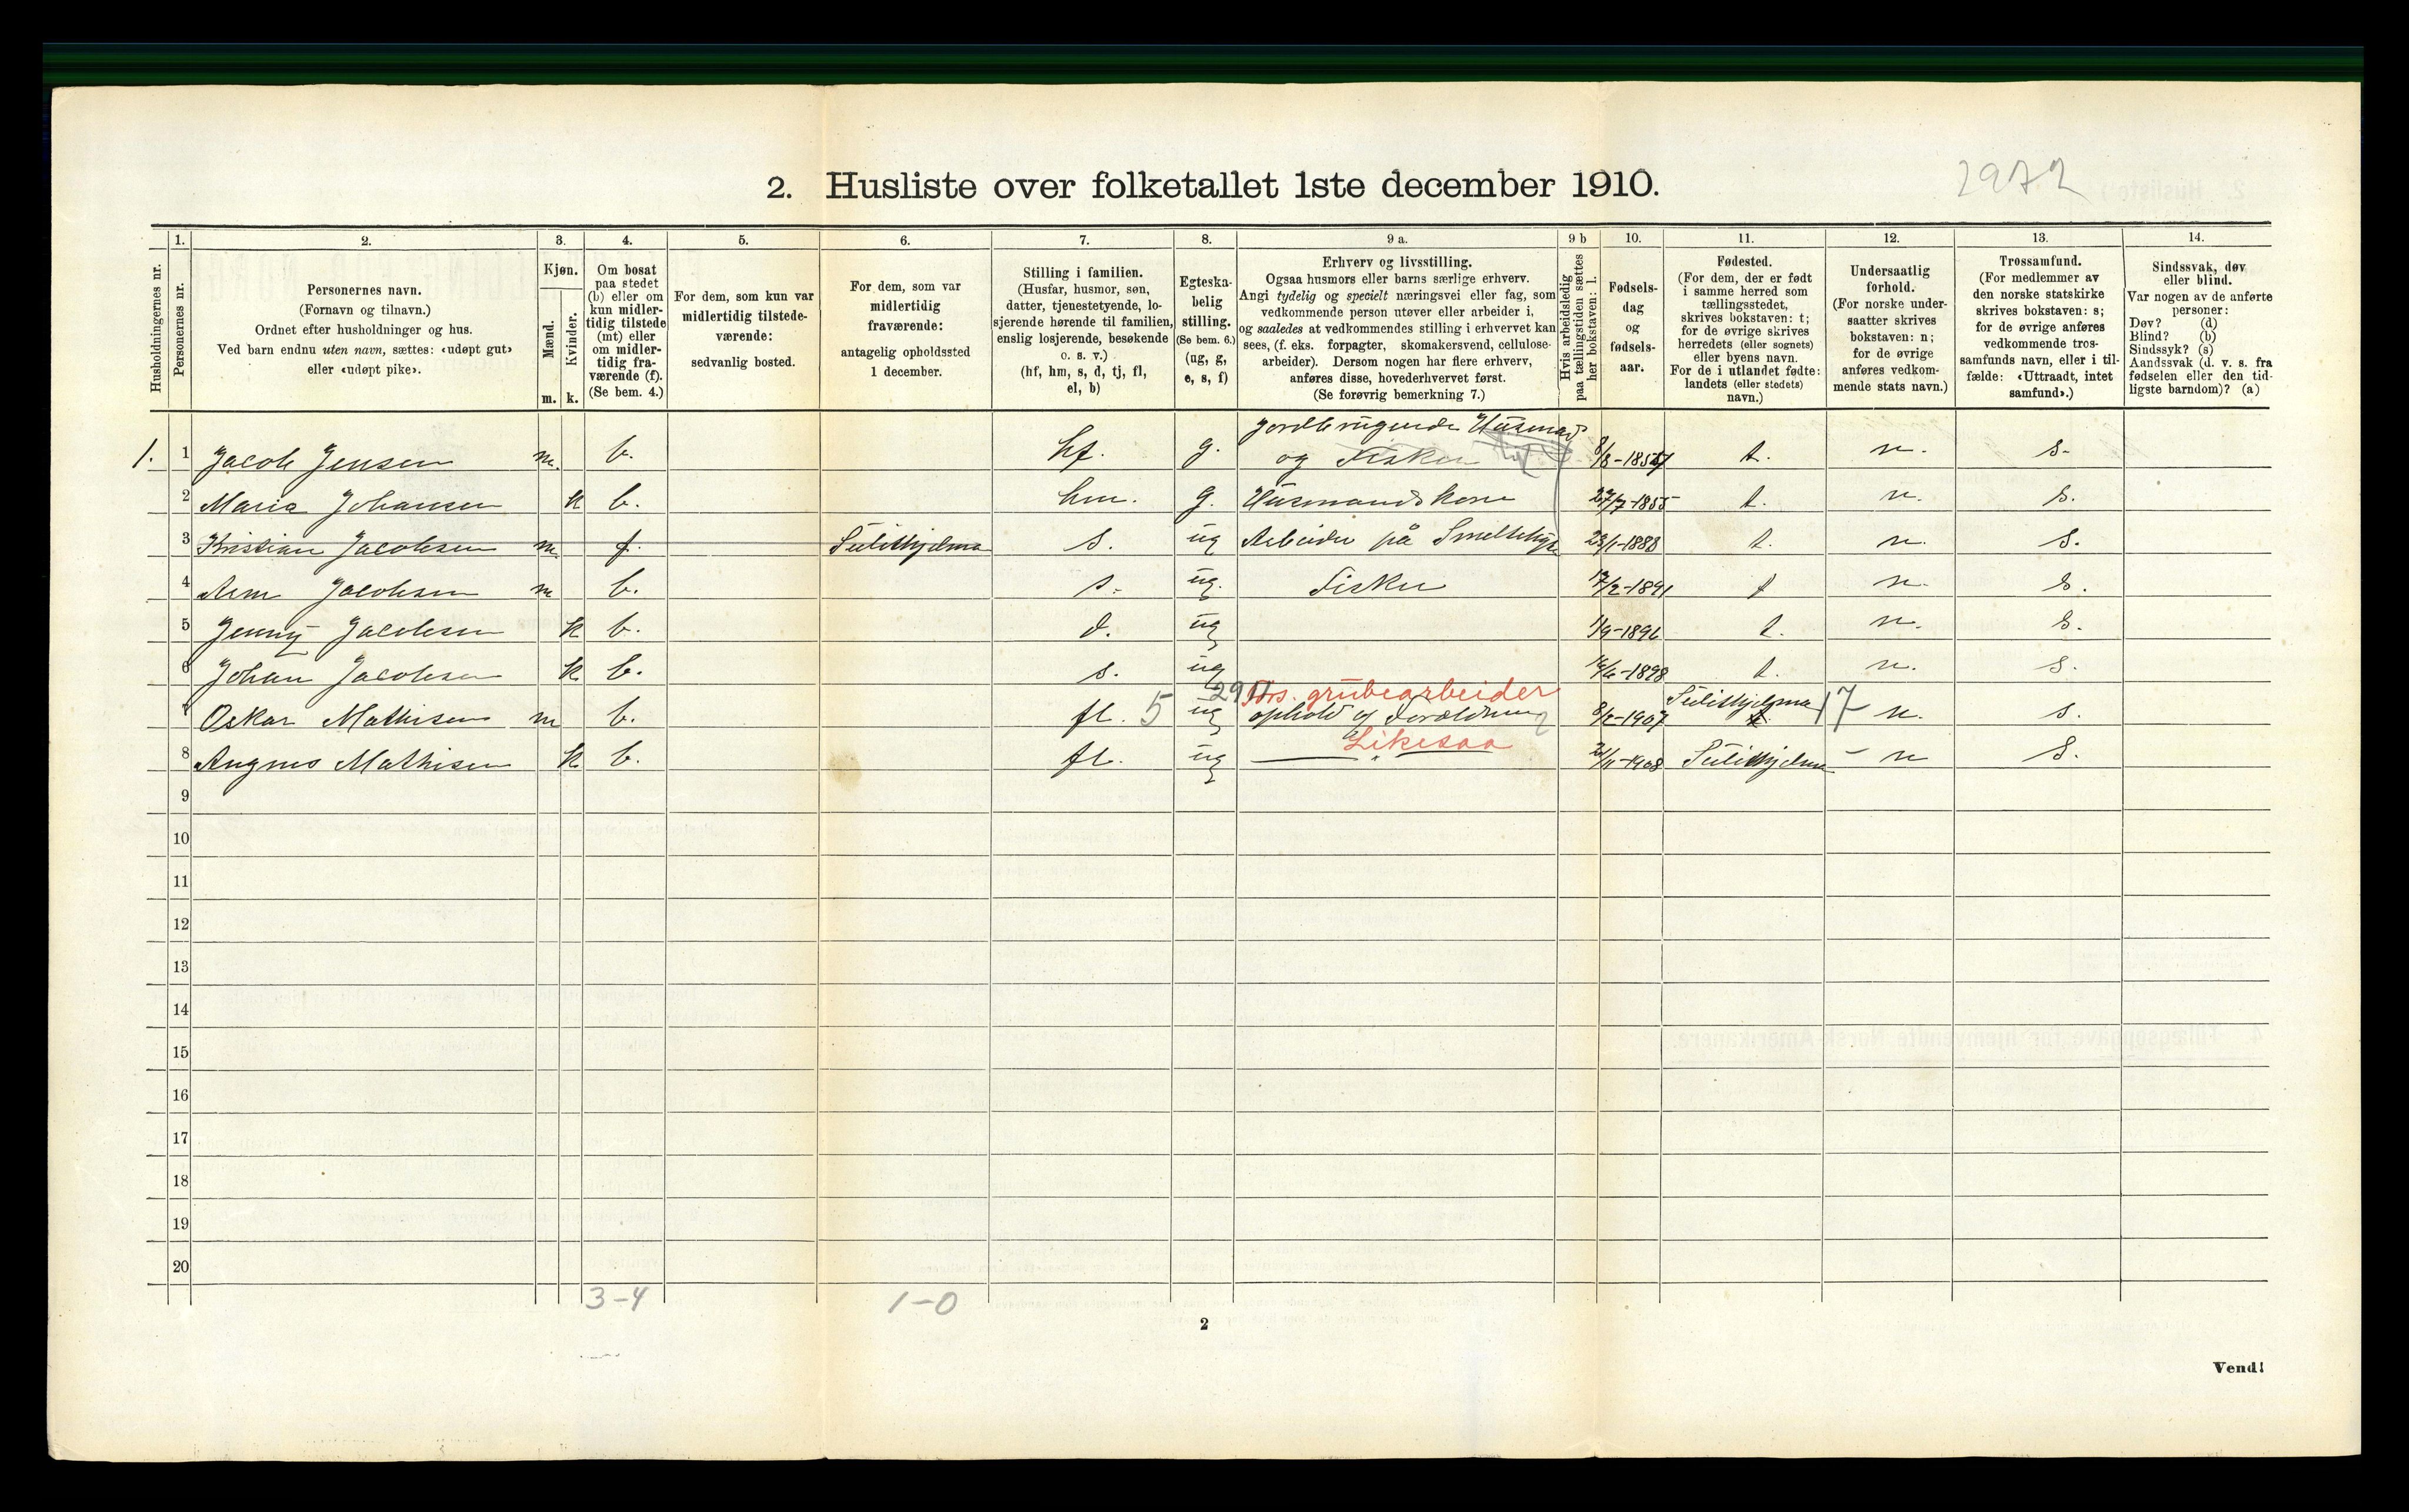 2972
2. Husliste over folketallet 1ste december 1910.
Husholdningernes nr.
1.
Personernes nr.
2.
Personernes navn.
(Fornavn og tilnavn.)
Ordnet efter husholdninger og hus.
Ved barn endnu uten navn, sættes: «udøpt gut»
eller «udøpt pike».
3.
Kjøn.
Mænd.
Kvinder.
m. k.
4.
Om bosat
paa stedet
(b) eller om
kun midler-
tidig tilstede
(mt) eller
om midler-
tidig fra-
værende (f).
(Se bem. 4.)
5.
For dem, som kun var
midlertidig tilstede-
værende:
sedvanlig bosted.
6.
For dem, som var
midlertidig
fraværende:
antagelig opholdssted
1 december.
7.
Stilling i familien.
(Husfar, husmor, søn,
datter, tjenestetyende, lo-
sjerende hørende til familien,
enslig losjerende, besøkende
o. s. v.)
(hf, hm, s, d, tj, fl,
el, b)
8.
Egteska-
belig
stilling.
(Se bem. 6.)
(ug, g,
e, s, f)
9 a.
Erhverv og livsstilling.
Ogsaa husmors eller barns særlige erhverv.
Angi tydelig og specielt næringsvei eller fag, som
vedkommende person utøver eller arbeider i,
og saaledes at vedkommendes stilling i erhvervet kan
sees, (f. eks. forpagter, skomakersvend, cellulose-
arbeider). Dersom nogen har flere erhverv,
anføres disse, hovederhvervet først.
(Se forøvrig bemerkning 7.)
9 b
Hvis arbeidsledig
paa tællingstiden sættes
her bokstaven: l.
10.
Fødsels-
dag
og
fødsels-
aar.
11.
Fødested.
(For dem, der er født
i samme herred som
tællingsstedet,
skrives bokstaven: t;
for de øvrige skrives
herredets (eller sognets)
eller byens navn.
For de i utlandet fødte:
landets (eller stedets)
navn.)
12.
Undersaatlig
forhold.
(For norske under-
saatter skrives
bokstaven: n;
for de øvrige
anføres vedkom-
mende stats navn.)
13.
Trossamfund.
(For medlemmer av
den norske statskirke
skrives bokstaven: s;
for de øvrige anføres
vedkommende tros-
samfunds navn, eller i til-
fælde: «Uttraadt, intet
samfund».)
14.
Sindssvak, døv
eller blind.
Var nogen av de anførte
personer:
Døv? (d)
Blind? (b)
Sindssyk? (s)
Aandssvak (d. v. s. fra
fødselen eller den tid-
ligste barndom)? (a)
jordbrugende Husmad
1. 1 Jacob Jensen m. b. hf. g. og Fisker 8/8-1857 t. n. s.
2 Maria Johansen k b. hm. g. Husmandskone 27/7-1855 t. n. s.
3 Kristian Jacobsen m. f. Sulithjelma s. ug Arbeider på Smeltehytte 23/1-1888 t. n. s.
4 Arne Jacobsen m b. s. ug. Fisker 17/2-1891 t n. s.
5 Jenny Jacobsen k b. d. ug 1/9-1896 t. n. s.
6 Johan Jacobsen k b. s. ug 16/6-1898 t. n. s.
2911 Fors. grubearbeider Sulithjelma
7 Oskar Mathisen m b. fl. 5 ug ophold af Forældrene 8/2-1907 t. 17 n. s.
Likesaa
8 Angnes Mathisen k b. fl. ug — " — 21/11-1908 Sulithjelma - n s.
9
10
11
12
13
14
15
16
17
18
19
20
3-4 1-0
2
Vend!